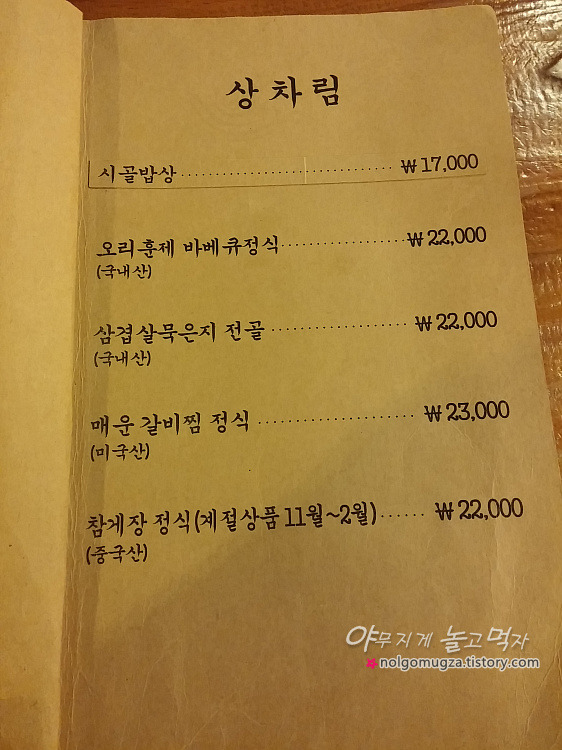 상차림
시골밥상 ₩17,000
오리훈제 바베큐정식 ₩22,000
(국내산)
삼겹살묵은지 전골 ₩22,000
(국내산)
매운 갈비찜 정식 ₩23,000
(미국산)
참게장 정식(계절상품 11월~2월) ₩22,000
(중국산)
야무지게 놀고먹자
nolgomugza.tistory.com